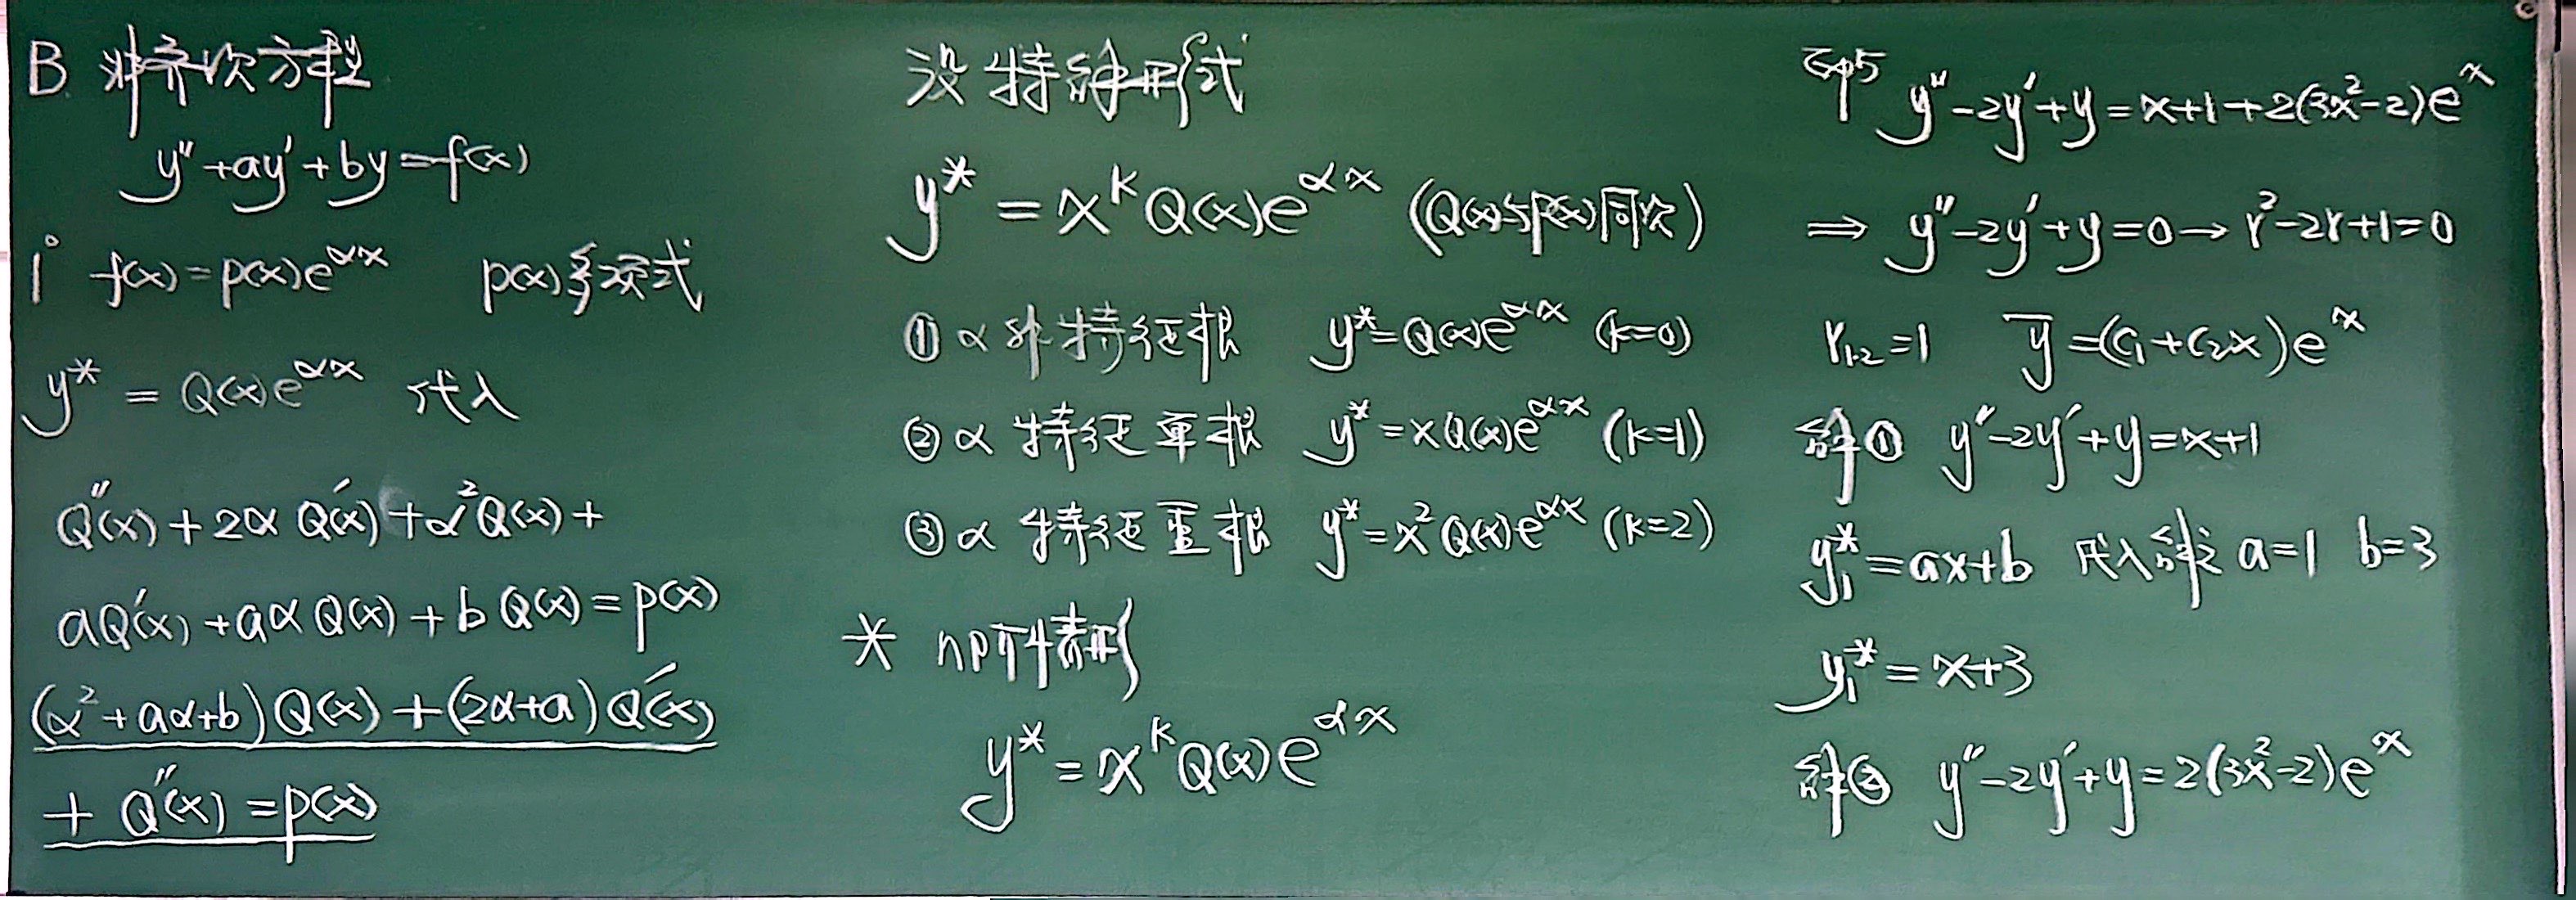 B 非齐次方程
y''+ay'+by=f(x)
1° f(x)=p(x)e^{αx} p(x)多项式
y* = Q(x)e^{αx} 代入
Q''(x)+2αQ'(x)+α²Q(x)+
aQ'(x)+aαQ(x)+bQ(x)=p(x)
(α²+aα+b)Q(x)+(2α+a)Q'(x)
+Q''(x)=p(x)
设特解形式
y* = x^k Q(x)e^{αx} (Q(x)与p(x)同次)
① α非特征根 y*=Q(x)e^{αx} (k=0)
② α特征单根 y*=xQ(x)e^{αx} (k=1)
③ α特征重根 y*=x²Q(x)e^{αx} (k=2)
* n阶情形
y*=x^k Q(x)e^{αx}
例5 y''-2y'+y=x+1+2(3x²-2)e^x
⇒ y''-2y'+y=0→r²-2r+1=0
r₁.₂=1 ȳ=(c₁+c₂x)e^x
解① y''-2y'+y=x+1
y₁*=ax+b 代入解之 a=1 b=3
y₁*=x+3
解② y''-2y'+y=2(3x²-2)e^x